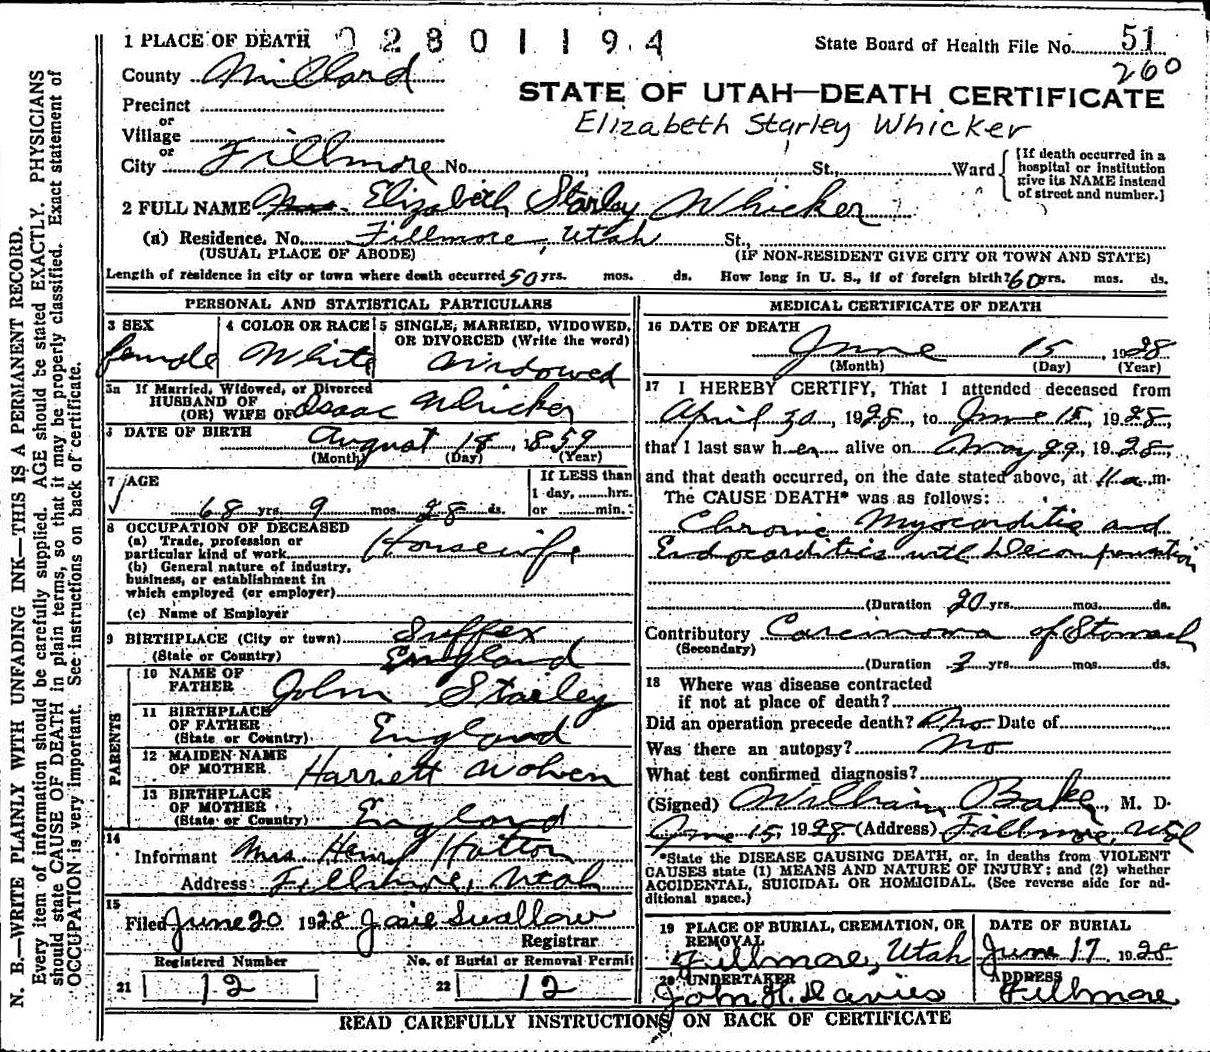 1 PLACE OF DEATH 02801194
State Board of Health File No. 51
260
County Millard
STATE OF UTAH—DEATH CERTIFICATE
Precinct
or
Village
Elizabeth Starley Whicker
or
City Fillmore No. St., Ward
[If death occurred in a hospital or institution give its NAME instead of street and number.]
2 FULL NAME Mrs. Elizabeth Starley Whicker
(a) Residence. No. Fillmore, Utah St.,
(USUAL PLACE OF ABODE) (IF NON-RESIDENT GIVE CITY OR TOWN AND STATE)
Length of residence in city or town where death occurred 50 yrs. mos. ds. How long in U. S., if of foreign birth? 60 yrs. mos. ds.
PERSONAL AND STATISTICAL PARTICULARS
3 SEX
female
4 COLOR OR RACE
White
5 SINGLE, MARRIED, WIDOWED, OR DIVORCED (Write the word)
Widowed
3a If Married, Widowed, or Divorced
HUSBAND OF
(OR) WIFE OF Isaac Whicker
6 DATE OF BIRTH
August 18, 1859
(Month) (Day) (Year)
7 AGE
68 yrs. 9 mos. 28 ds.
If LESS than
1 day, hrs.
or min.
8 OCCUPATION OF DECEASED
(a) Trade, profession or
particular kind of work Housewife
(b) General nature of industry,
business, or establishment in
which employed (or employer)
(c) Name of Employer
9 BIRTHPLACE (City or town) Suffex
(State or Country) England
PARENTS
10 NAME OF
FATHER John Starley
11 BIRTHPLACE
OF FATHER
(State or Country) England
12 MAIDEN NAME
OF MOTHER Harriett Wolven
13 BIRTHPLACE
OF MOTHER
(State or Country) England
14
Informant Mrs. Henry Hatton
Address Fillmore, Utah
15
Filed June 20 1928 Josie Swallow
Registrar
Registered Number No. of Burial or Removal Permit
21 12 22 12
MEDICAL CERTIFICATE OF DEATH
16 DATE OF DEATH
June 15, 1928
(Month) (Day) (Year)
17 I HEREBY CERTIFY, That I attended deceased from
April 30, 1928, to June 15, 1928,
that I last saw her alive on May 29, 1928,
and that death occurred, on the date stated above, at 11 a. m.
The CAUSE DEATH* was as follows:
Chronic Myocarditis and
Endocarditis with Decompensation
(Duration 20 yrs. mos. ds.
Contributory Carcinoma of Stomach
(Secondary)
(Duration 3 yrs. mos. ds.
18 Where was disease contracted
if not at place of death?
Did an operation precede death? No Date of
Was there an autopsy? No
What test confirmed diagnosis?
(Signed) William Baker, M. D.
June 15, 1928 (Address) Fillmore, Utah
*State the DISEASE CAUSING DEATH, or, in deaths from VIOLENT
CAUSES state (1) MEANS AND NATURE OF INJURY; and (2) whether
ACCIDENTAL, SUICIDAL OR HOMICIDAL. (See reverse side for ad-
ditional space.)
19 PLACE OF BURIAL, CREMATION, OR
REMOVAL
Fillmore, Utah
DATE OF BURIAL
June 17, 1928
20 UNDERTAKER
John H. Davies
ADDRESS
Fillmore
READ CAREFULLY INSTRUCTIONS ON BACK OF CERTIFICATE
N. B.—WRITE PLAINLY WITH UNFADING INK—THIS IS A PERMANENT RECORD.
Every item of information should be carefully supplied. AGE should be stated EXACTLY. PHYSICIANS
should state CAUSE OF DEATH in plain terms, so that it may be properly classified. Exact statement of
OCCUPATION is very important. See instructions on back of certificate.